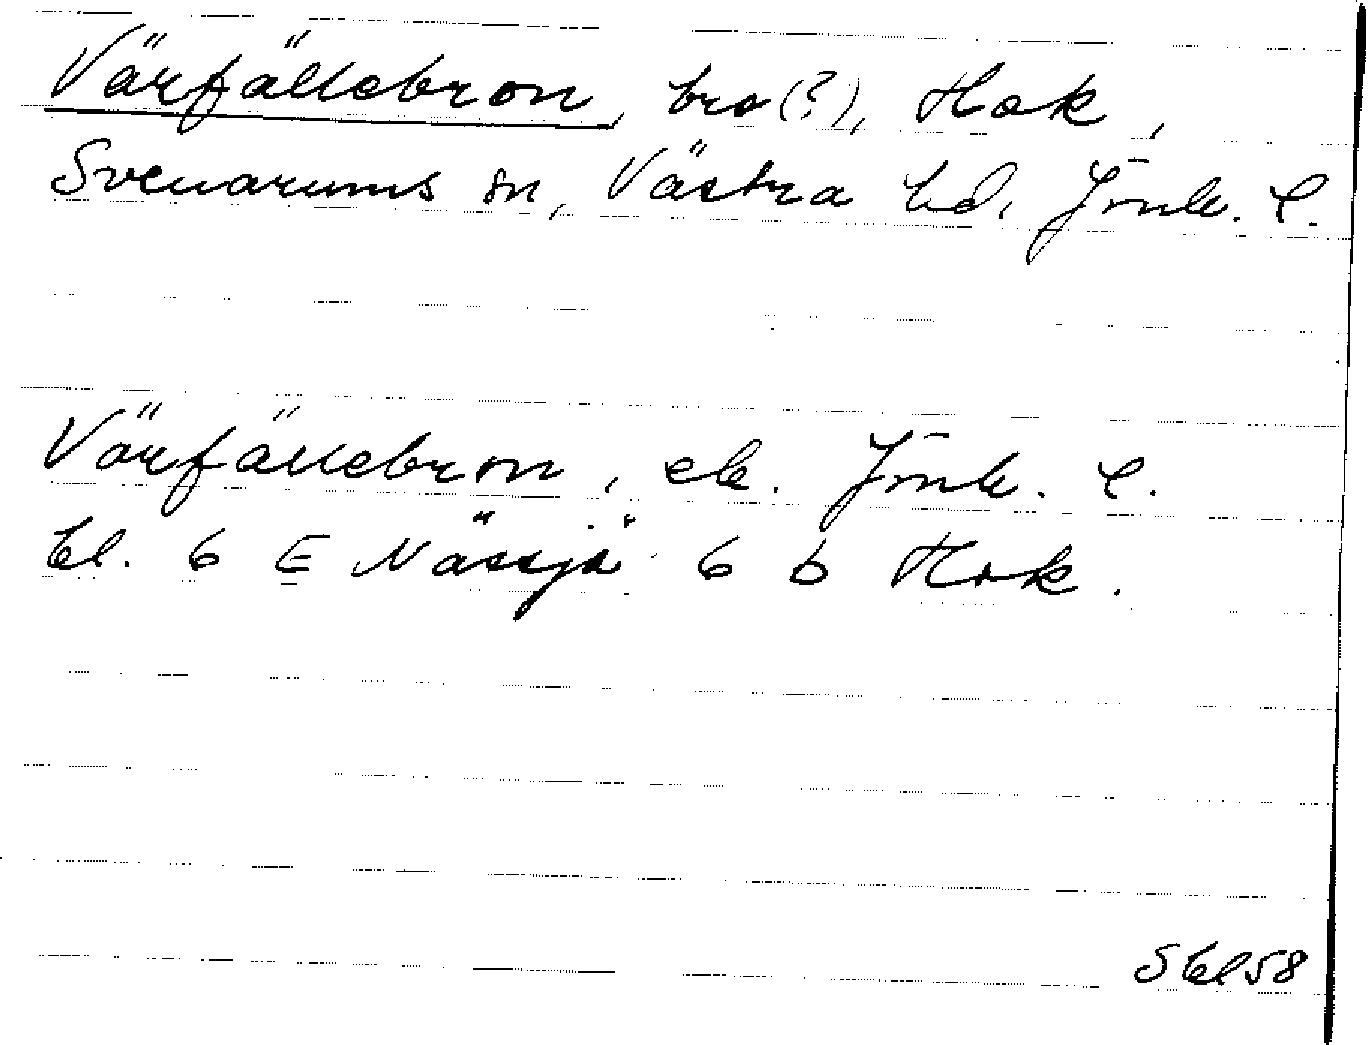 Värfällebron, bro(?), Hok,
Svenarums sn, Västra hd, Jönk. l.
Värfällebron, ek. Jönk. l.
bl. 6 E Nässjö 6 b Hok.
Sbl58